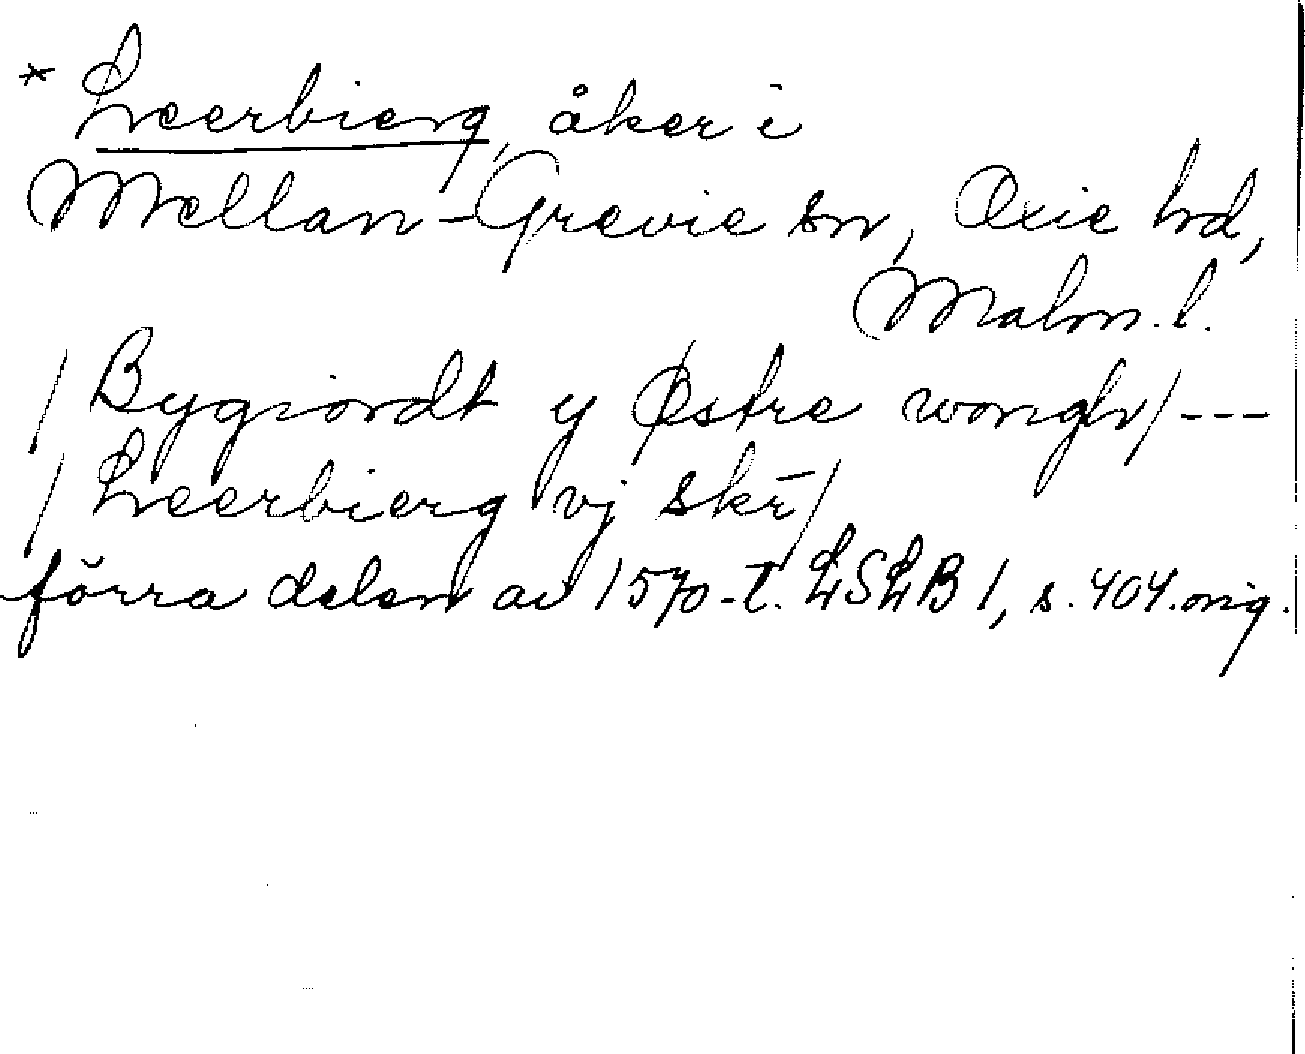 * Leerbierg, åker i
Mellan-Grevie sn, Oxie hd,
Malm. l.
/Bygiordt y Østre wongh/---
/Leerbierg vj skr̄/
förra delen av 1570-t. LSLB 1, s. 404. orig.